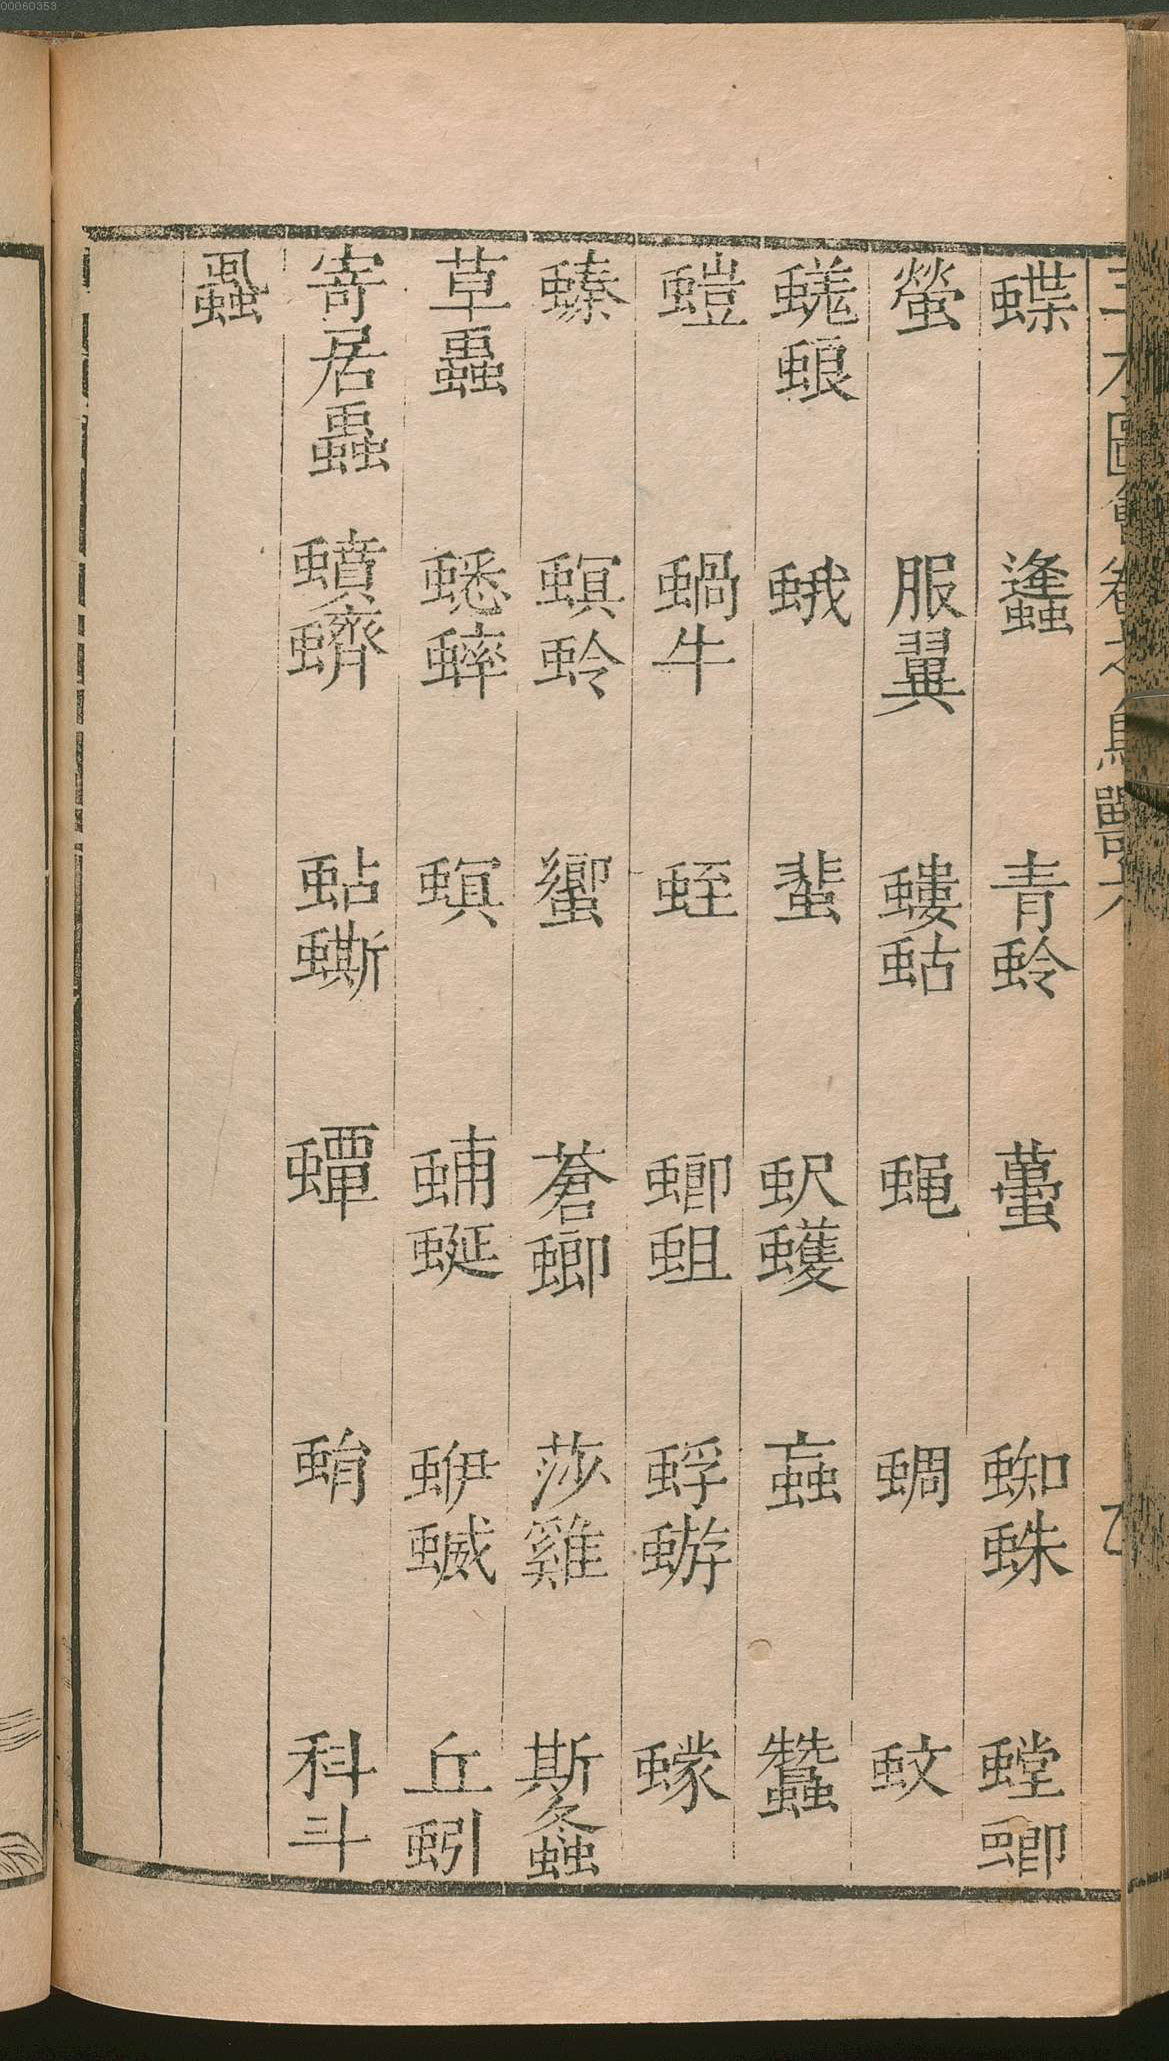 00060353
三才圖會卷之鳥獸六
蝶 蠭 青蛉 蠆 蜘蛛 螳蜋
螢 服翼 螻蛄 蝿 蜩 蚊
蜣蜋 蛾 蜚 蚇蠖 蝱 蠶
螘 蝸牛 蛭 蝍蛆 蜉蝣 蠓
螓 螟蛉 蠁 蒼螂 莎雞 斯螽
草蟲 蟋蟀 螟 蜅蜒 蛜蝛 丘蚓
寄居蟲 蟦蠐 蛅蟴 蟫 蛕 科斗
蝨